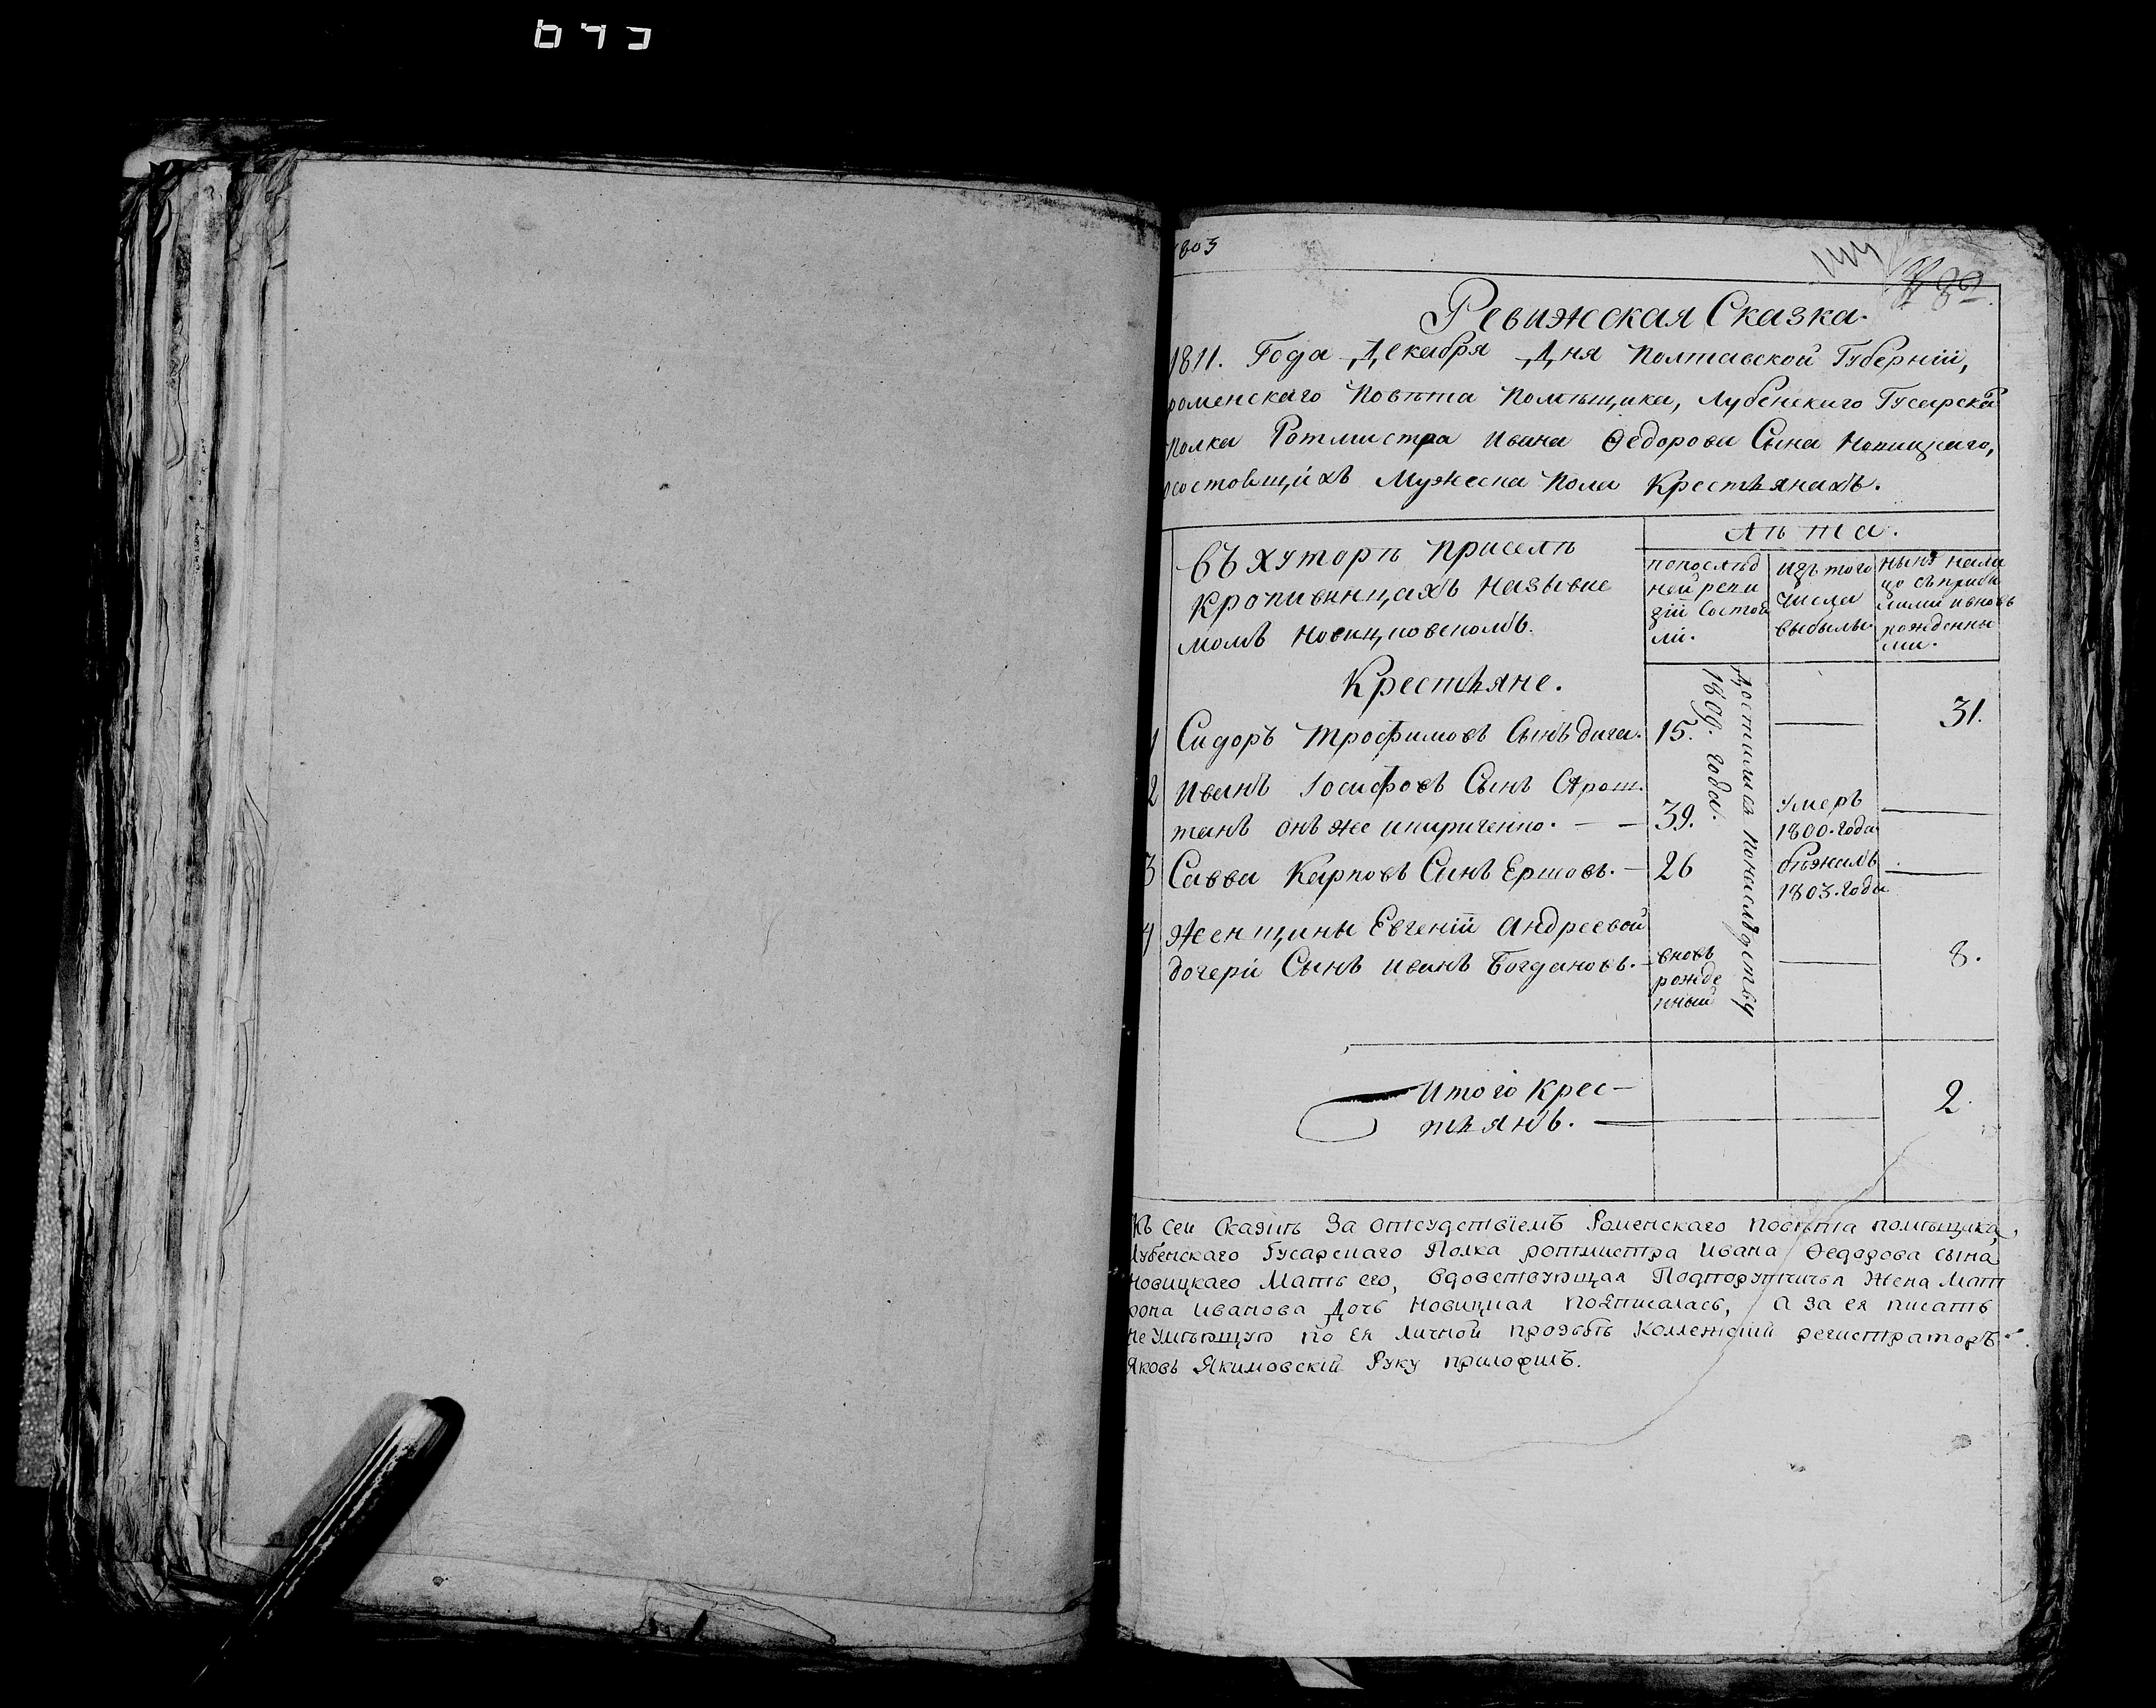 803
Ревижская Сказка.
1811. Года Декабря Дня Полтавской Губерніи,
роменскаго Повѣта Помѣщика, Лубенскаго Гусарскаго
Полка Ротмистра Ивана Ѳедорова Сына Новицкаго,
осостовщихъ Мужеска Пола Крестьянахъ.
Лѣта.
въ хуторѣ Приселѣ
Кропивинцахъ Называе
момъ Новицковскомъ.
попослѣд
ней реви
зіи Состоя
ли.
Изъ того
числа
выбыли.
Нынѣ нали
цо съ прибы
лими и вновь
рожденны
ми.
Крестьяне.
1 Сидоръ Трофимовъ Сынъ дига. 15. — 31.
Достались Понаслѣдству
1809. года.
2 Иванъ Іосифовъ Сынъ
танъ онъ же — — 39. умеръ
1800. года —
3 Савва Карповъ Синъ Ершовъ. — 26 бѣжалъ
1803. года —
4 Женщины Евгеніи Андреевой
дочери Сынъ Иванъ Богдановъ. — вновь
рожде
нный — 8.
Итого Крес-
тьянъ. — 2.
Къ сеи Сказкѣ За отсудствіемъ Роменскаго повѣта помѣщика,
Лубенскаго Гусарскаго Полка ротмистра Ивана Ѳедорова сына
Новицкаго Мать его, вдовствующая Подпорутчичья Жена Мат
рона Иванова Дочь Новицкая подписалась, а за ея писать
не умѣющую по Ея личной прозьбѣ Коллежскій регистраторъ
Яковъ Якимовскій Руку приложилъ.